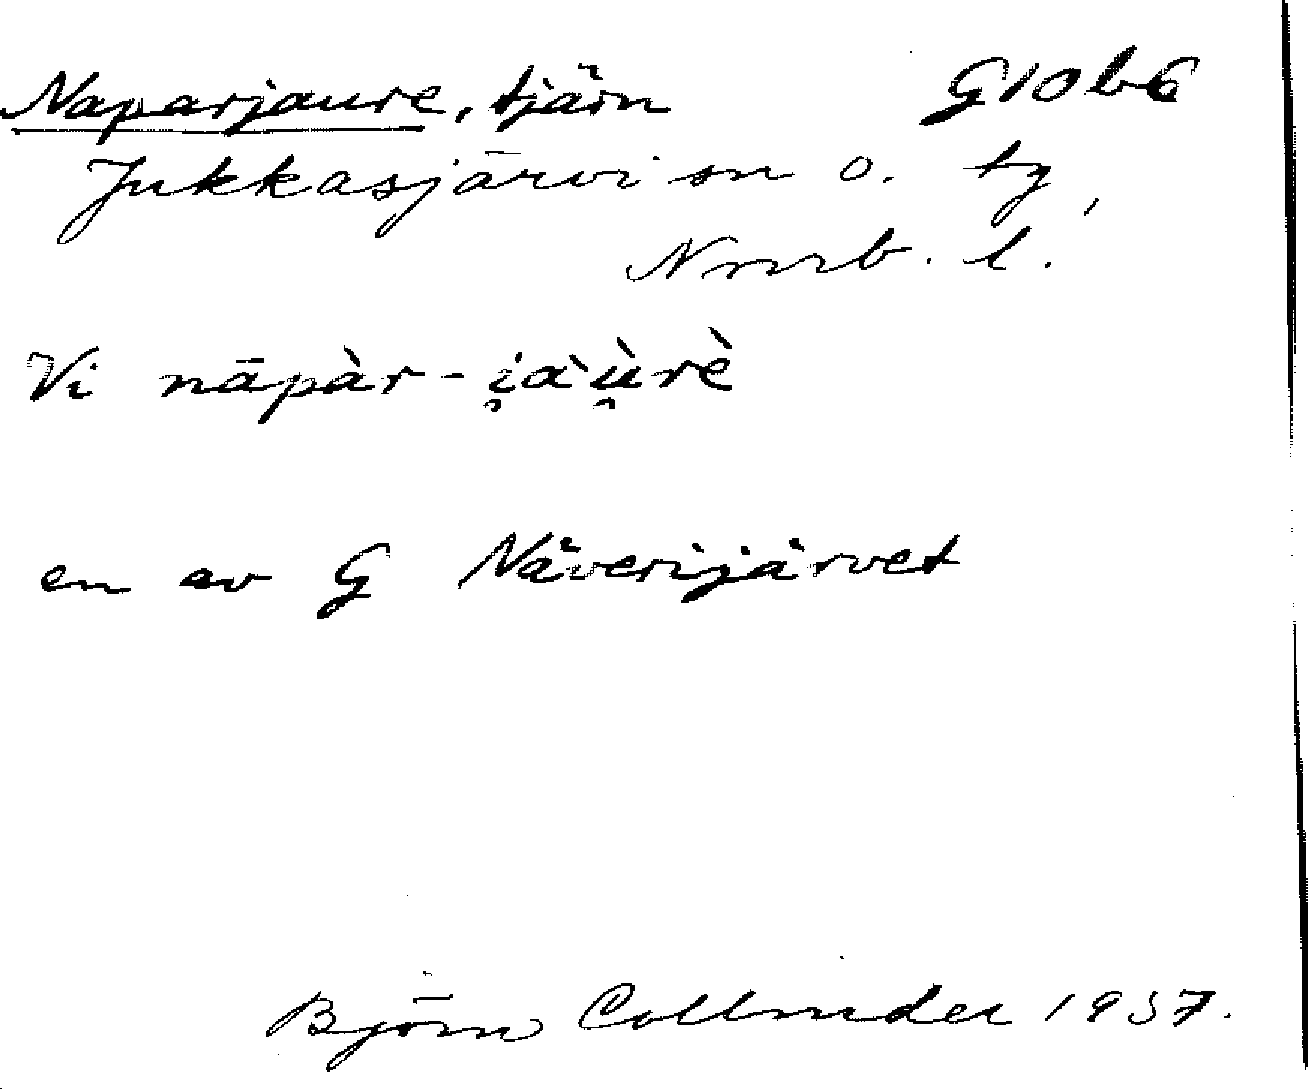 Naparjaure, tjärn G10b6
Jukkasjärvi sn o. tg,
Norrb. l.
Vi nāpàr-i̯àù̯rè
en av G Näverijärvet
Björn Collinder 1937.